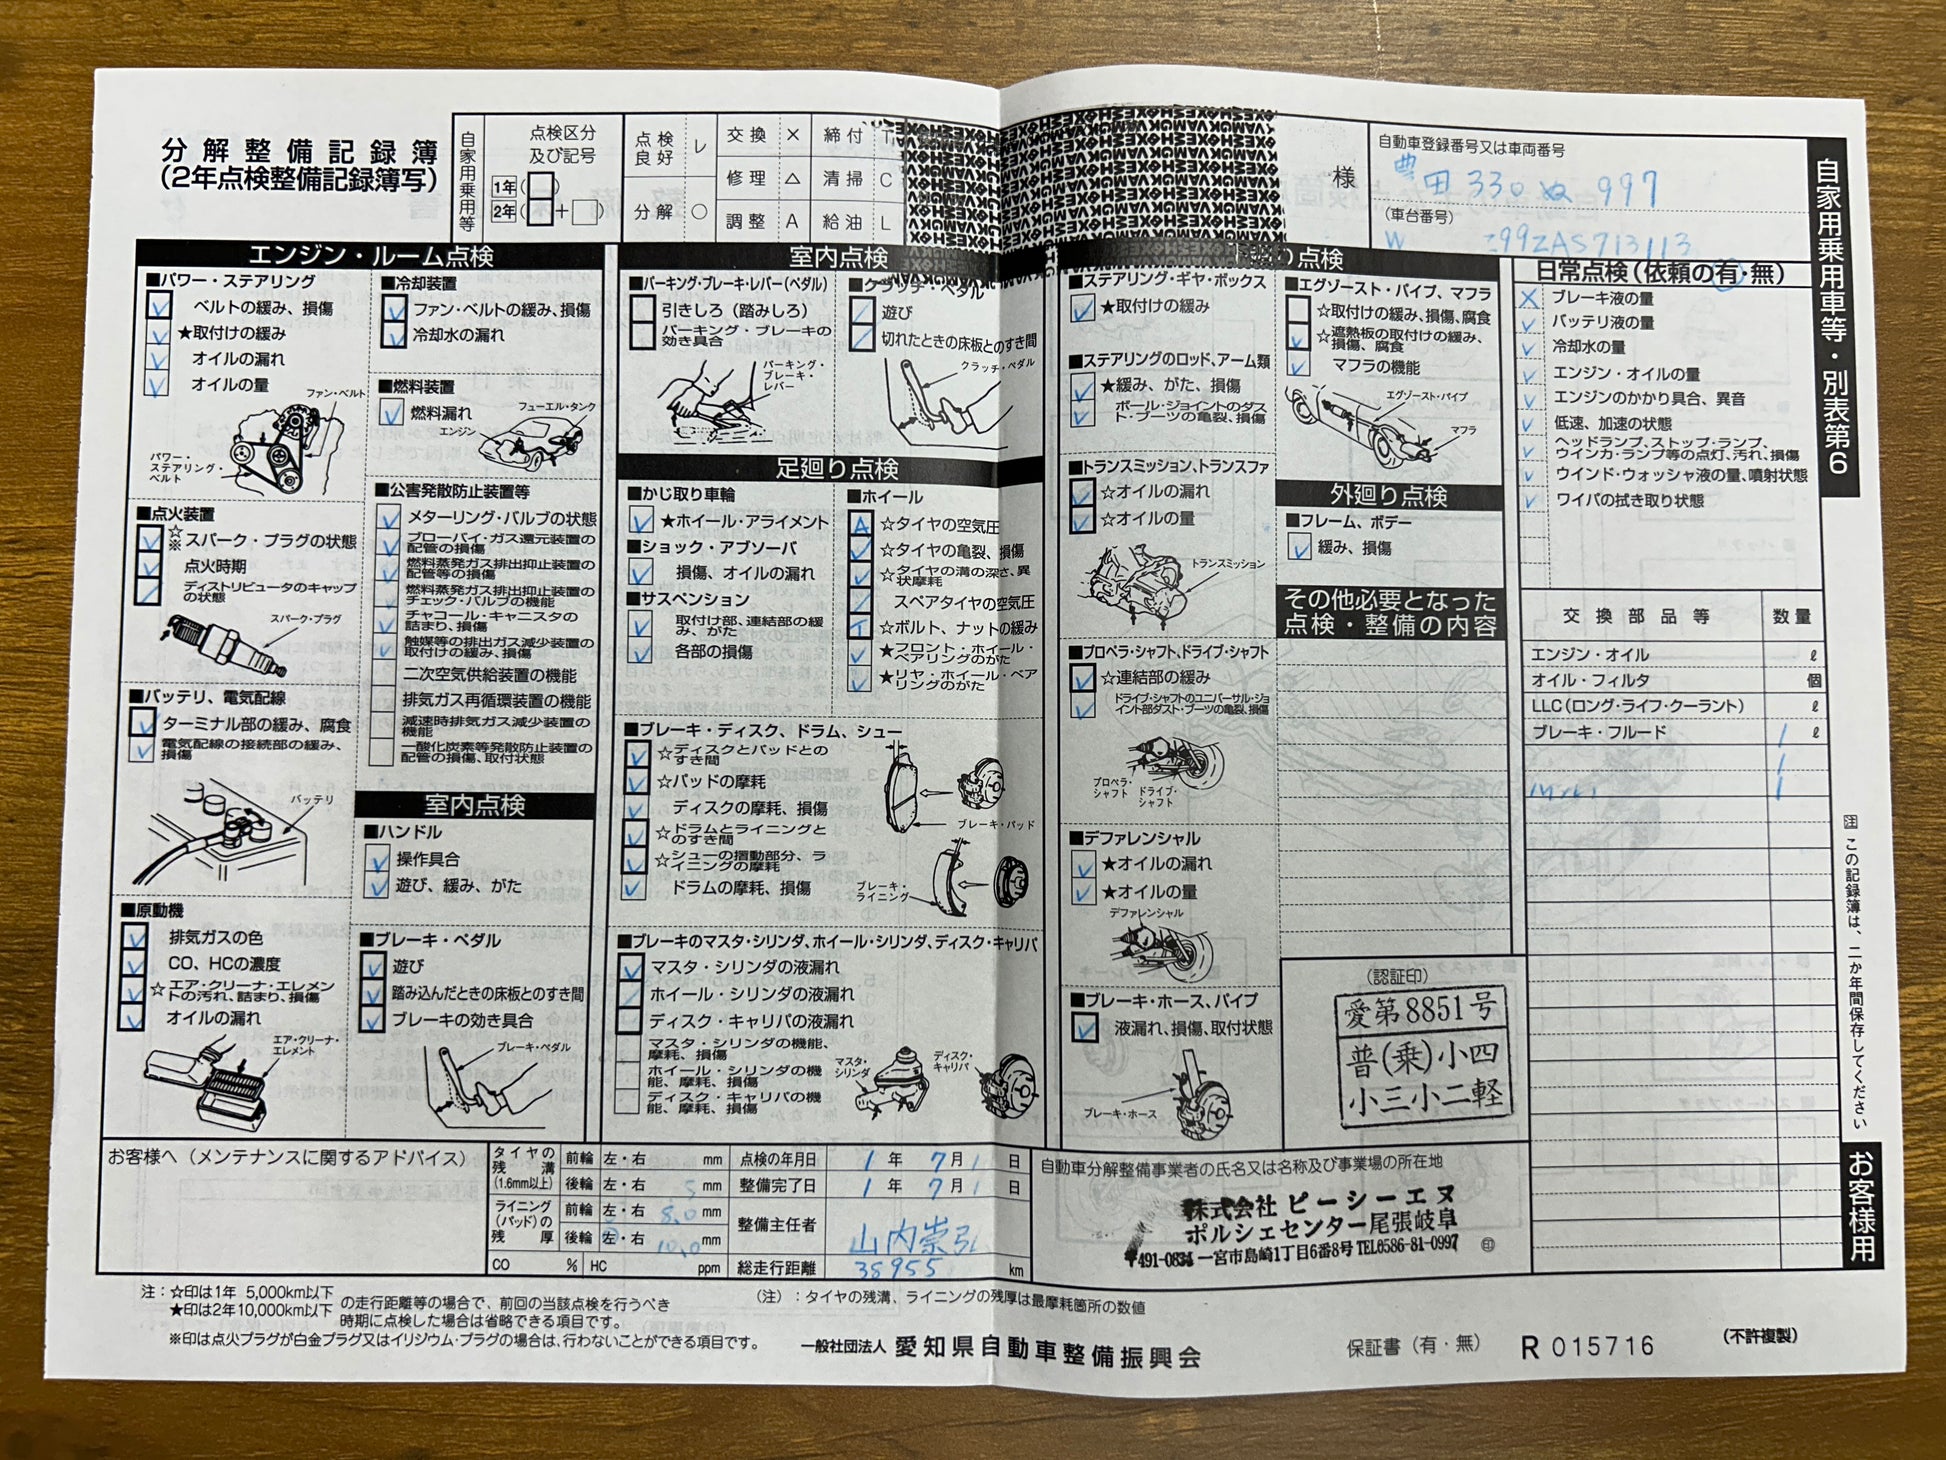 分解整備記録簿
(2年点検整備記録簿写)
自家用乗用等
点検区分及び記号
1年( )
2年( + )
点検良好 レ 交換 × 締付 T
修理 △ 清掃 C
分解 ○ 調整 A 給油 L
様
自動車登録番号又は車両番号
豊田 330 ぬ 997
(車台番号)
W Z99ZAS713113
自家用乗用車等・別表第6
エンジン・ルーム点検
■パワー・ステアリング
ベルトの緩み、損傷
★取付けの緩み
オイルの漏れ
オイルの量
ファン・ベルト
パワー・ステアリング・ベルト
■点火装置
☆※スパーク・プラグの状態
点火時期
ディストリビュータのキャップの状態
スパーク・プラグ
■バッテリ、電気配線
ターミナル部の緩み、腐食
電気配線の接続部の緩み、損傷
バッテリ
■原動機
排気ガスの色
CO、HCの濃度
☆エア・クリーナ・エレメントの汚れ、詰まり、損傷
オイルの漏れ
エア・クリーナ・エレメント
■冷却装置
ファン・ベルトの緩み、損傷
冷却水の漏れ
■燃料装置
燃料漏れ
フューエル・タンク
エンジン
■公害発散防止装置等
メターリング・バルブの状態
ブローバイ・ガス還元装置の配管の損傷
燃料蒸発ガス排出抑止装置の配管等の損傷
燃料蒸発ガス排出抑止装置のチェック・バルブの機能
チャコール・キャニスタの詰まり、損傷
触媒等の排出ガス減少装置の取付けの緩み、損傷
二次空気供給装置の機能
排気ガス再循環装置の機能
減速時排気ガス減少装置の機能
一酸化炭素等発散防止装置の配管の損傷、取付状態
室内点検
■ハンドル
操作具合
遊び、緩み、がた
■ブレーキ・ペダル
遊び
踏み込んだときの床板とのすき間
ブレーキの効き具合
ブレーキ・ペダル
室内点検
■パーキング・ブレーキ・レバー(ペダル)
引きしろ(踏みしろ)
パーキング・ブレーキの効き具合
パーキング・ブレーキ・レバー
■クラッチ・ペダル
遊び
切れたときの床板とのすき間
クラッチ・ペダル
足廻り点検
■かじ取り車輪
★ホイール・アライメント
■ショック・アブソーバ
損傷、オイルの漏れ
■サスペンション
取付け部、連結部の緩み、がた
各部の損傷
■ホイール
A ☆タイヤの空気圧
☆タイヤの亀裂、損傷
☆タイヤの溝の深さ、異状摩耗
スペアタイヤの空気圧
T ☆ボルト、ナットの緩み
★フロント・ホイール・ベアリングのがた
★リヤ・ホイール・ベアリングのがた
■ブレーキ・ディスク、ドラム、シュー
☆ディスクとパッドとのすき間
☆パッドの摩耗
ディスクの摩耗、損傷
☆ドラムとライニングとのすき間
☆シューの摺動部分、ライニングの摩耗
ドラムの摩耗、損傷
ブレーキ・パッド
ブレーキ・ライニング
■ブレーキのマスタ・シリンダ、ホイール・シリンダ、ディスク・キャリパ
マスタ・シリンダの液漏れ
ホイール・シリンダの液漏れ
ディスク・キャリパの液漏れ
マスタ・シリンダの機能、摩耗、損傷
ホイール・シリンダの機能、摩耗、損傷
ディスク・キャリパの機能、摩耗、損傷
マスタ・シリンダ
ディスク・キャリパ
り点検
■ステアリング・ギヤ・ボックス
★取付けの緩み
■ステアリングのロッド、アーム類
★緩み、がた、損傷
ボール・ジョイントのダスト・ブーツの亀裂、損傷
■トランスミッション、トランスファ
☆オイルの漏れ
☆オイルの量
トランスミッション
■プロペラ・シャフト、ドライブ・シャフト
☆連結部の緩み
ドライブ・シャフトのユニバーサル・ジョイント部ダスト・ブーツの亀裂、損傷
プロペラ・シャフト
ドライブ・シャフト
■デファレンシャル
★オイルの漏れ
★オイルの量
デファレンシャル
■ブレーキ・ホース、パイプ
液漏れ、損傷、取付状態
ブレーキ・ホース
■エグゾースト・パイプ、マフラ
☆取付けの緩み、損傷、腐食
☆遮熱板の取付けの緩み、損傷、腐食
マフラの機能
エグゾースト・パイプ
マフラ
外廻り点検
■フレーム、ボデー
緩み、損傷
その他必要となった点検・整備の内容
(認証印)
愛第8851号
普(乗)小四
小三小二軽
日常点検(依頼の有・無)
ブレーキ液の量
バッテリ液の量
冷却水の量
エンジン・オイルの量
エンジンのかかり具合、異音
低速、加速の状態
ヘッドランプ、ストップ・ランプ、ウインカ・ランプ等の点灯、汚れ、損傷
ウインド・ウォッシャ液の量、噴射状態
ワイパの拭き取り状態
交換部品等 数量
エンジン・オイル ℓ
オイル・フィルタ 個
LLC(ロング・ライフ・クーラント) ℓ
ブレーキ・フルード 1 ℓ
1
1
注 この記録簿は、二か年間保存してください
お客様用
お客様へ(メンテナンスに関するアドバイス)
タイヤの残溝(1.6mm以上) 前輪 左・右 mm
後輪 左・右 5 mm
ライニング(パッド)の残厚 前輪 左・右 8.0 mm
後輪 左・右 10.0 mm
CO % HC ppm
点検の年月日 1年 7月 1日
整備完了日 1年 7月 1日
整備主任者 山内崇弘
総走行距離 38955 km
自動車分解整備事業者の氏名又は名称及び事業場の所在地
株式会社 ピーシーエヌ
ポルシェセンター尾張岐阜
〒491-0834 一宮市島崎1丁目6番8号 TEL0586-81-0997
㊞
注:☆印は1年 5,000km以下
★印は2年10,000km以下
の走行距離等の場合で、前回の当該点検を行うべき時期に点検した場合は省略できる項目です。
※印は点火プラグが白金プラグ又はイリジウム・プラグの場合は、行わないことができる項目です。
(注):タイヤの残溝、ライニングの残厚は最摩耗箇所の数値
一般社団法人 愛知県自動車整備振興会
保証書(有・無)
R 015716
(不許複製)